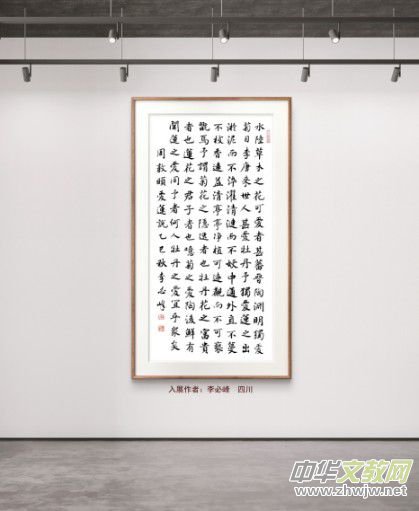 水陸草木之花可愛者甚蕃晉陶淵明獨愛
菊自李唐来世人甚愛牡丹予獨愛蓮之出
淤泥而不染濯清漣而不妖中通外直不蔓
不枝香遠益清亭亭净植可遠觀而不可褻
翫焉予謂菊花之隱逸者也牡丹花之富貴
者也蓮花之君子者也噫菊之愛陶後鮮有
聞蓮之愛同予者何人牡丹之愛宜乎衆矣
周敦頤愛蓮說乙巳秋李必峰
入展作者：李必峰 四川
中华文教网
www.zhwjw.net